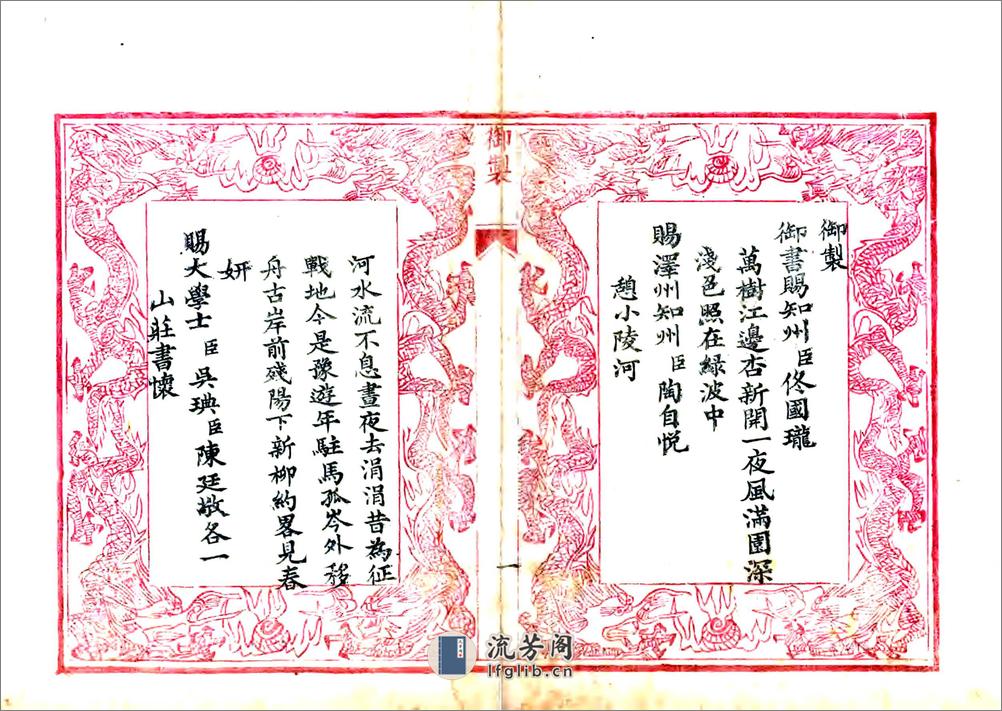 御製
御書賜知州臣佟國瓏
萬樹江邊杏新開一夜風滿園深
淺邑照在緑波中
賜澤州知州臣陶自悅
憩小陵河
御製
一
河水流不息晝夜去涓涓昔為征
戰地今是豫遊年駐馬孤岑外移
舟古岸前殘陽下新柳約畧見春
妍
賜大學士臣吳琠臣陳廷敬各一
山莊書懷
流芳阁
lfglib.cn